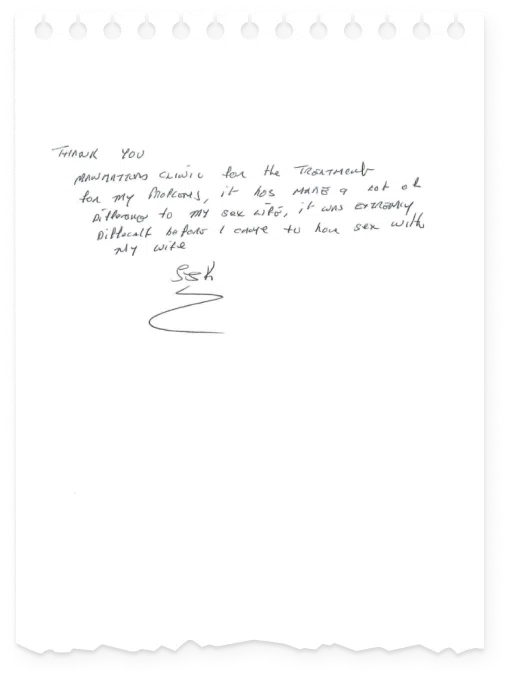 THANK YOU
CLINIC for the TREATMENT
for my PROBLEMS, it has MADE a lot of
Difference to my sex LIFE, it was EXTREMELY
Difficult before I came to have sex with
my wife
SSK